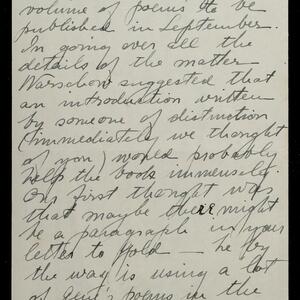 volume of poems to be
published in September.
In going over all the
details of the matter
Warshow suggested that
an introduction written
by someone of distinction
(immediately we thought
of you) would probably
help the book immensely.
Our first thought was
that maybe there might
be a paragraph in your
letter to Gold — he by
the way is using a lot
of Gene's poems in the